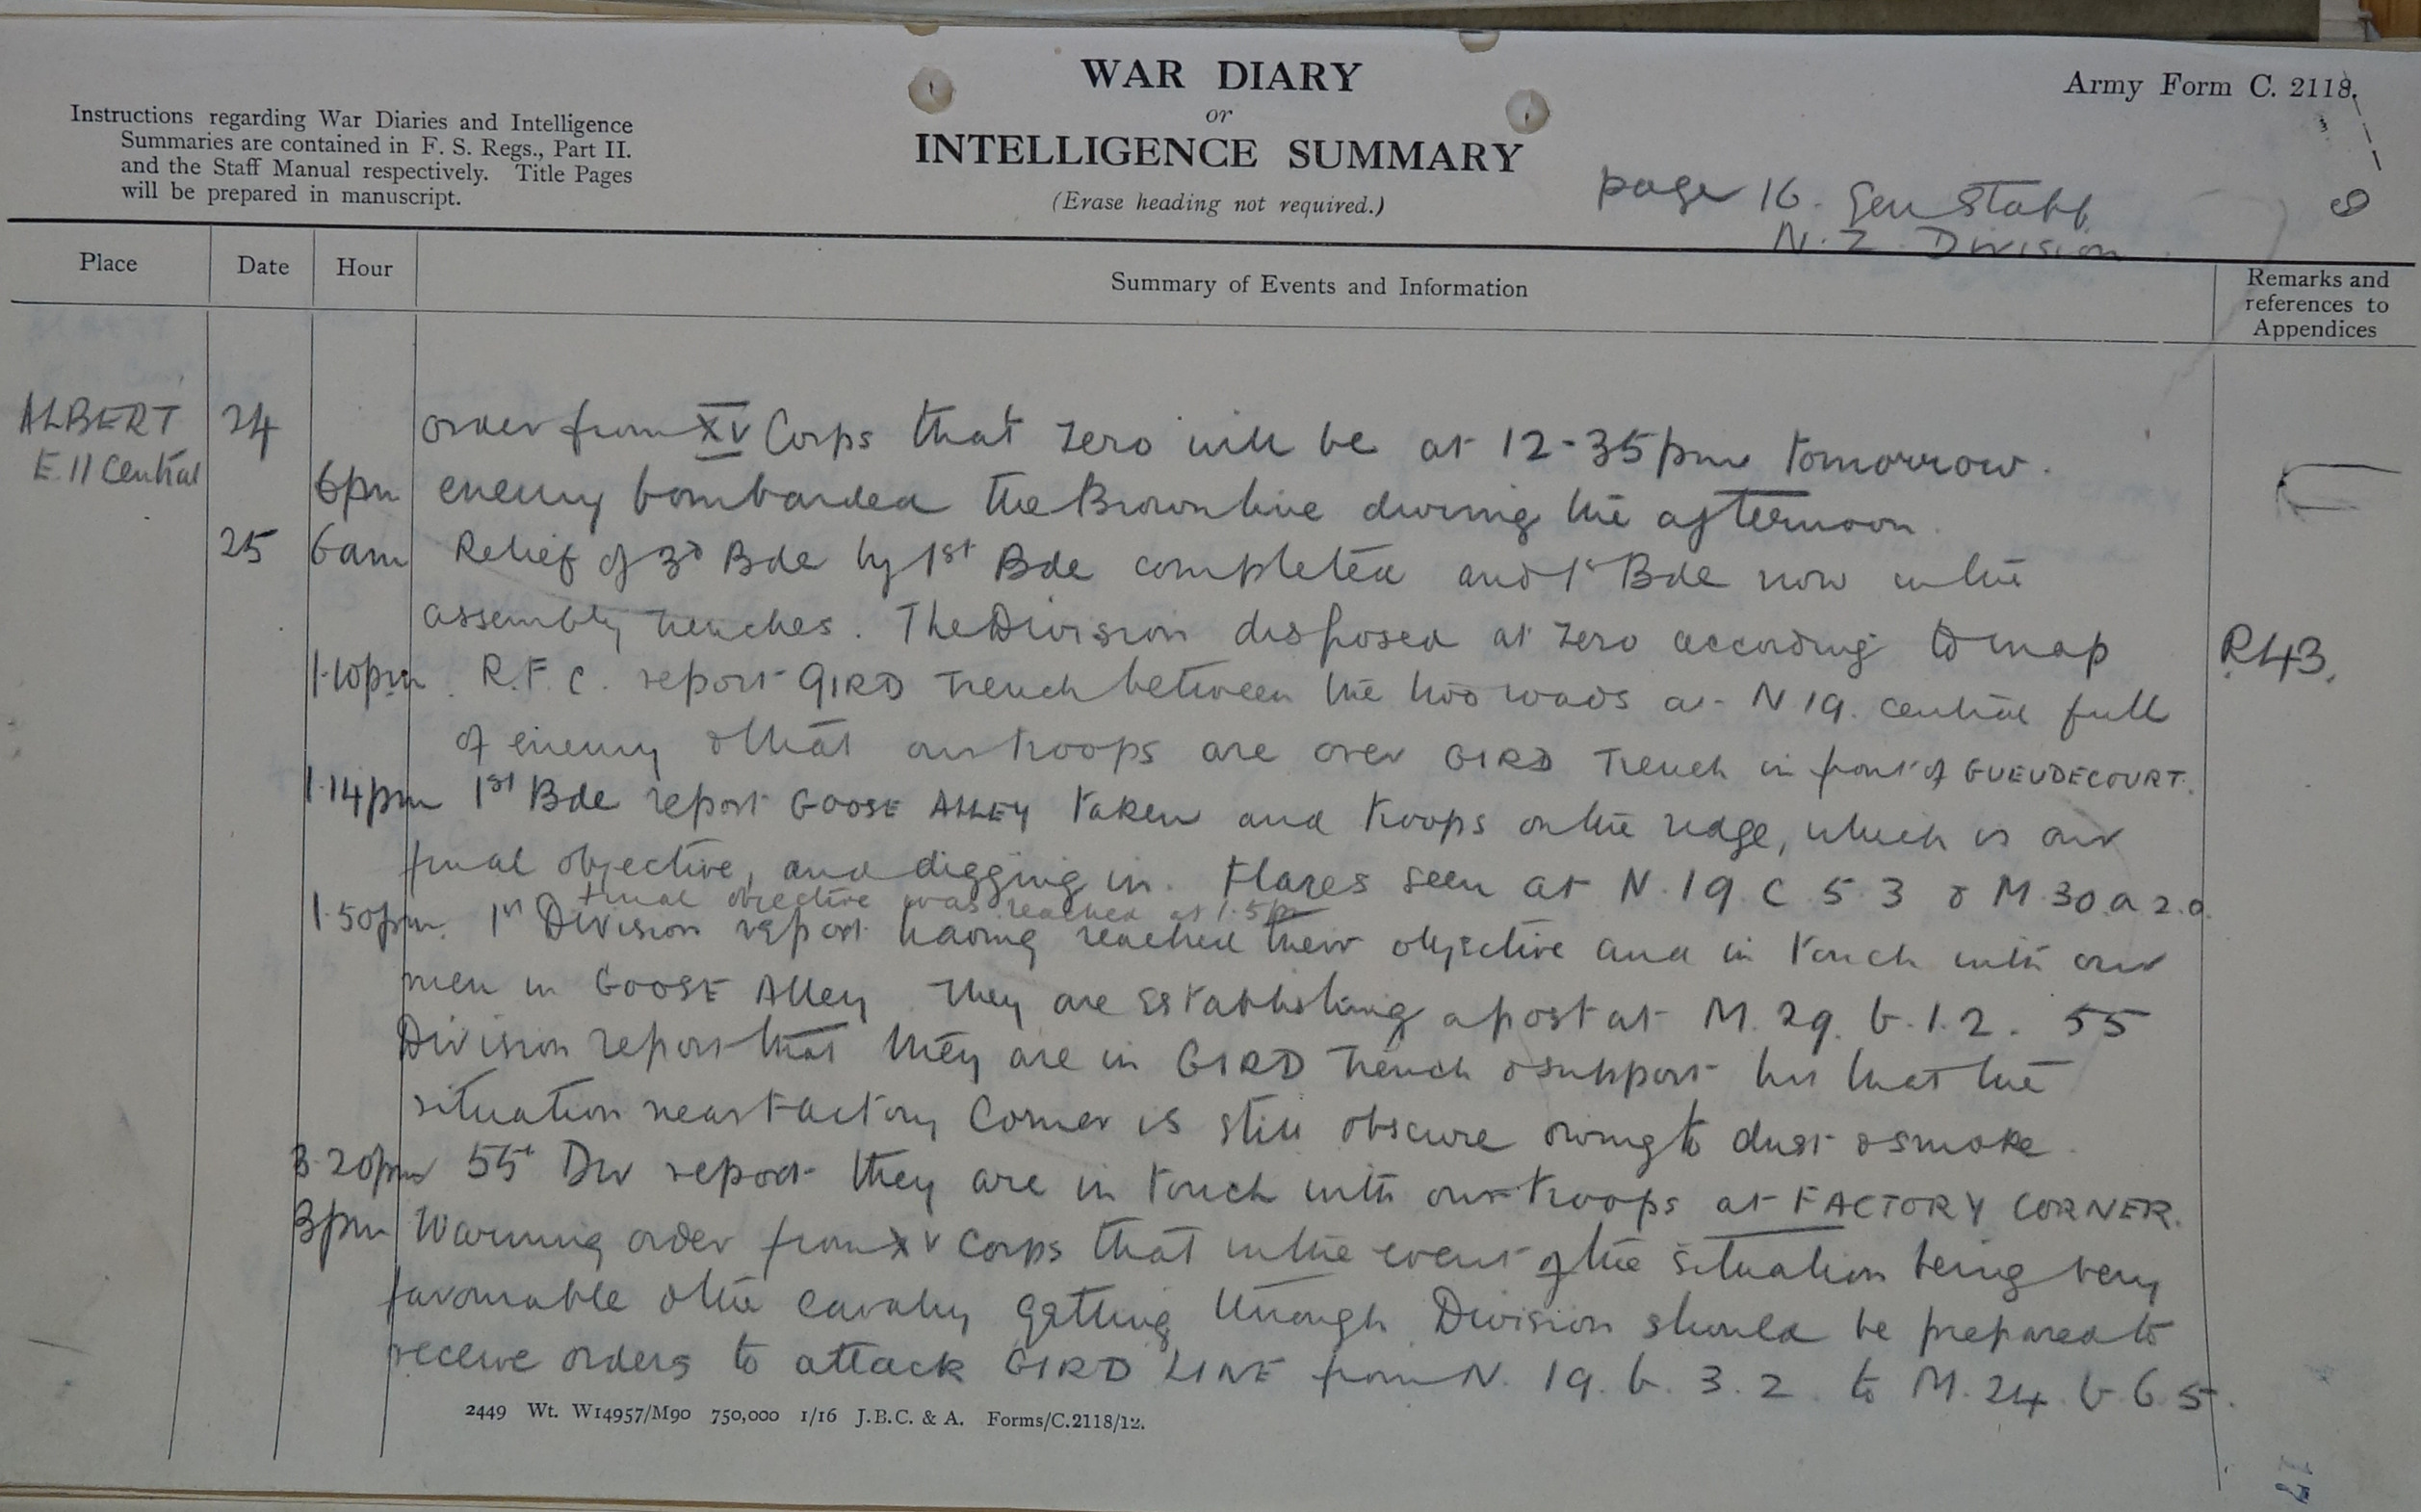 WAR DIARY
or
INTELLIGENCE SUMMARY
(Erase heading not required.)
Army Form C. 2118.
Instructions regarding War Diaries and Intelligence
Summaries are contained in F. S. Regs., Part II.
and the Staff Manual respectively. Title Pages
will be prepared in manuscript.
page 16. Gen Staff
N.Z Division
Place Date Hour Summary of Events and Information Remarks and
references to
Appendices
ALBERT 24 order from XV Corps that zero will be at 12-35pm tomorrow.
E.11 Central
6pm enemy bombarded the Brown line during the afternoon.
25 6am Relief of 3rd Bde by 1st Bde completed and 1st Bde now in the
assembly trenches. The Division disposed at zero according to map R43.
1.10pm. R.F.C. report GIRD Trench between the two roads at N 19. central full
of enemy & that our troops are over GIRD Trench in front of GUEUDECOURT.
1.14pm 1st Bde report GOOSE ALLEY taken and troops on the ridge, which is our
final objective, and digging in. Flares seen at N.19.C.5.3 & M.30.a.2.9.
final objective was reached at 1.5pm
1.50pm. 1st Division report having reached their objective and in touch with our
men in GOOSE Alley. They are establishing a post at M.29.b.1.2. 55
Division report that they are in GIRD Trench & support but that the
situation near Factory Corner is still obscure owing to dust & smoke.
3.20pm 55th Div report they are in touch with our troops at FACTORY CORNER.
3pm Warning order from XV Corps that in the event of the situation being very
favourable & the cavalry getting through Division should be prepared to
receive orders to attack GIRD LINE from N.19.b.3.2. to M.24.b.6.5.
2449 Wt. W14957/M90 750,000 1/16 J.B.C. & A. Forms/C.2118/12.